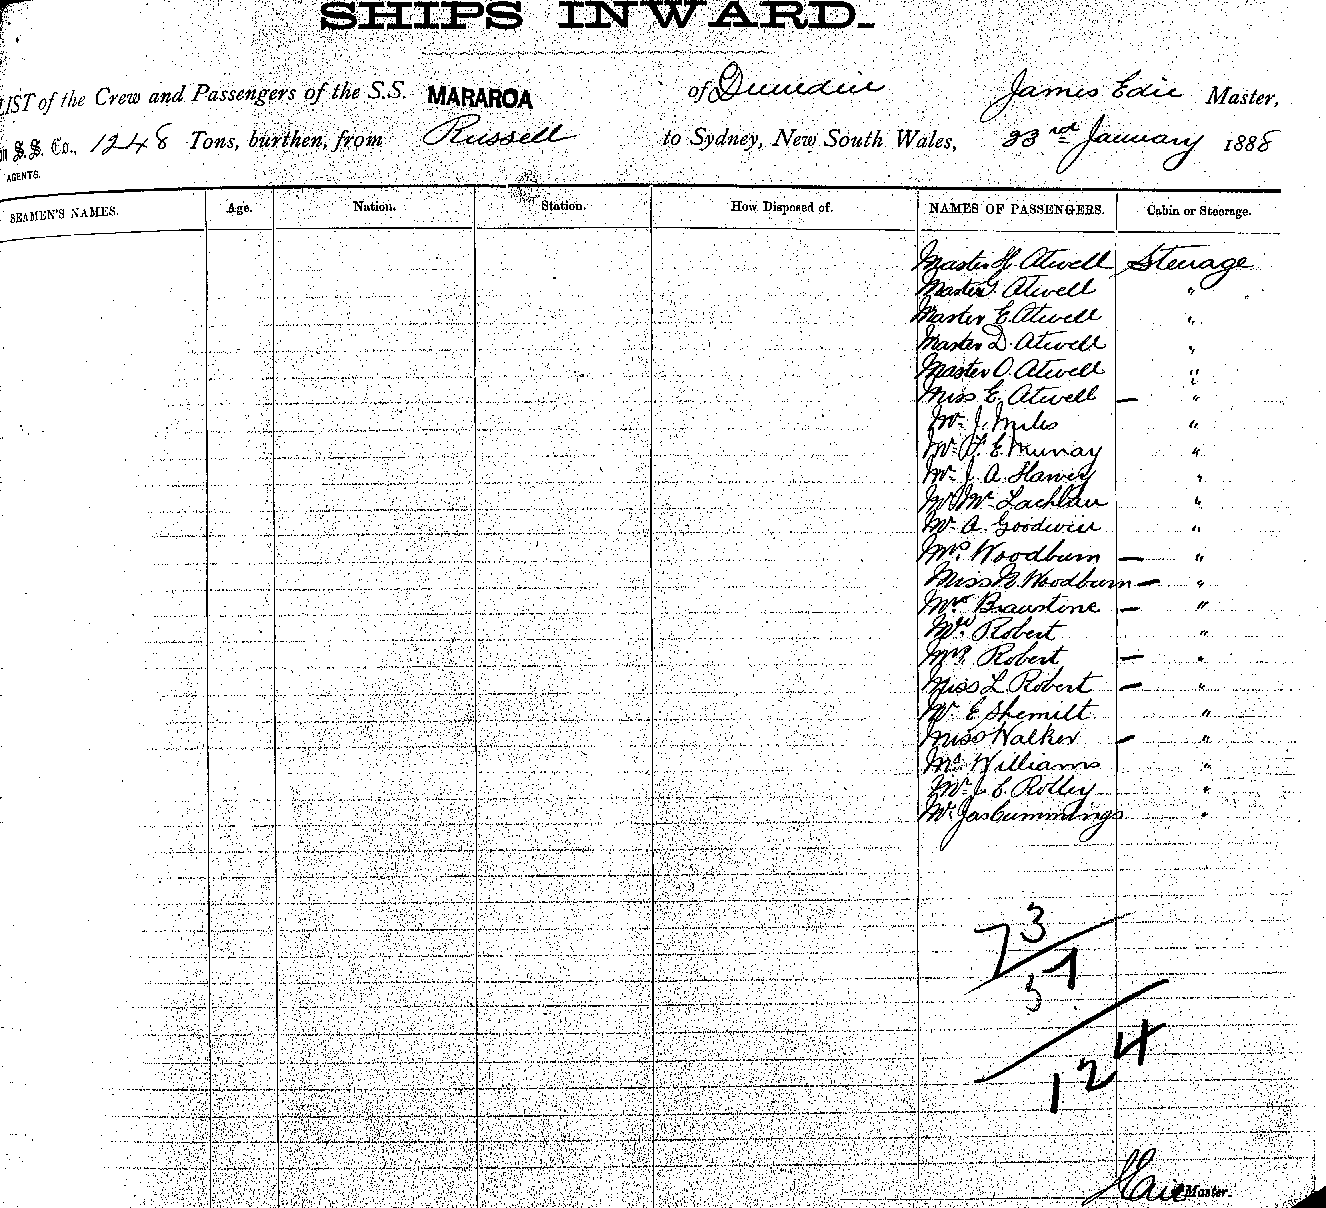 SHIPS INWARD.
LIST of the Crew and Passengers of the S.S. MARAROA of Dunedin James Edie Master,
S. S. Co., 1248 Tons, burthen, from Russell to Sydney, New South Wales, 23rd January 1888
AGENTS.
SEAMEN'S NAMES. Age. Nation. Station. How Disposed of. NAMES OF PASSENGERS. Cabin or Steerage.
Master H. Atwell Steerage
Master Atwell "
Master E. Atwell "
Master D. Atwell "
Master O. Atwell "
Miss E. Atwell — "
Mr. J. Miles "
Mr. E. Murray "
Mr. J. A. Harvey "
Mr Mc Lachlan "
Mr. A. Goodwin "
Mrs. Woodburn — "
Miss N Woodburn — "
Mrs Braustone — "
Mr. Robert "
Mrs. Robert — "
Miss L Robert — "
Mr. E Shemilt "
Miss Walker — "
Mr. Williams "
Mr. J. E. Rolley "
Mr. Jas Cummings "
73
51
124
J Edie Master.